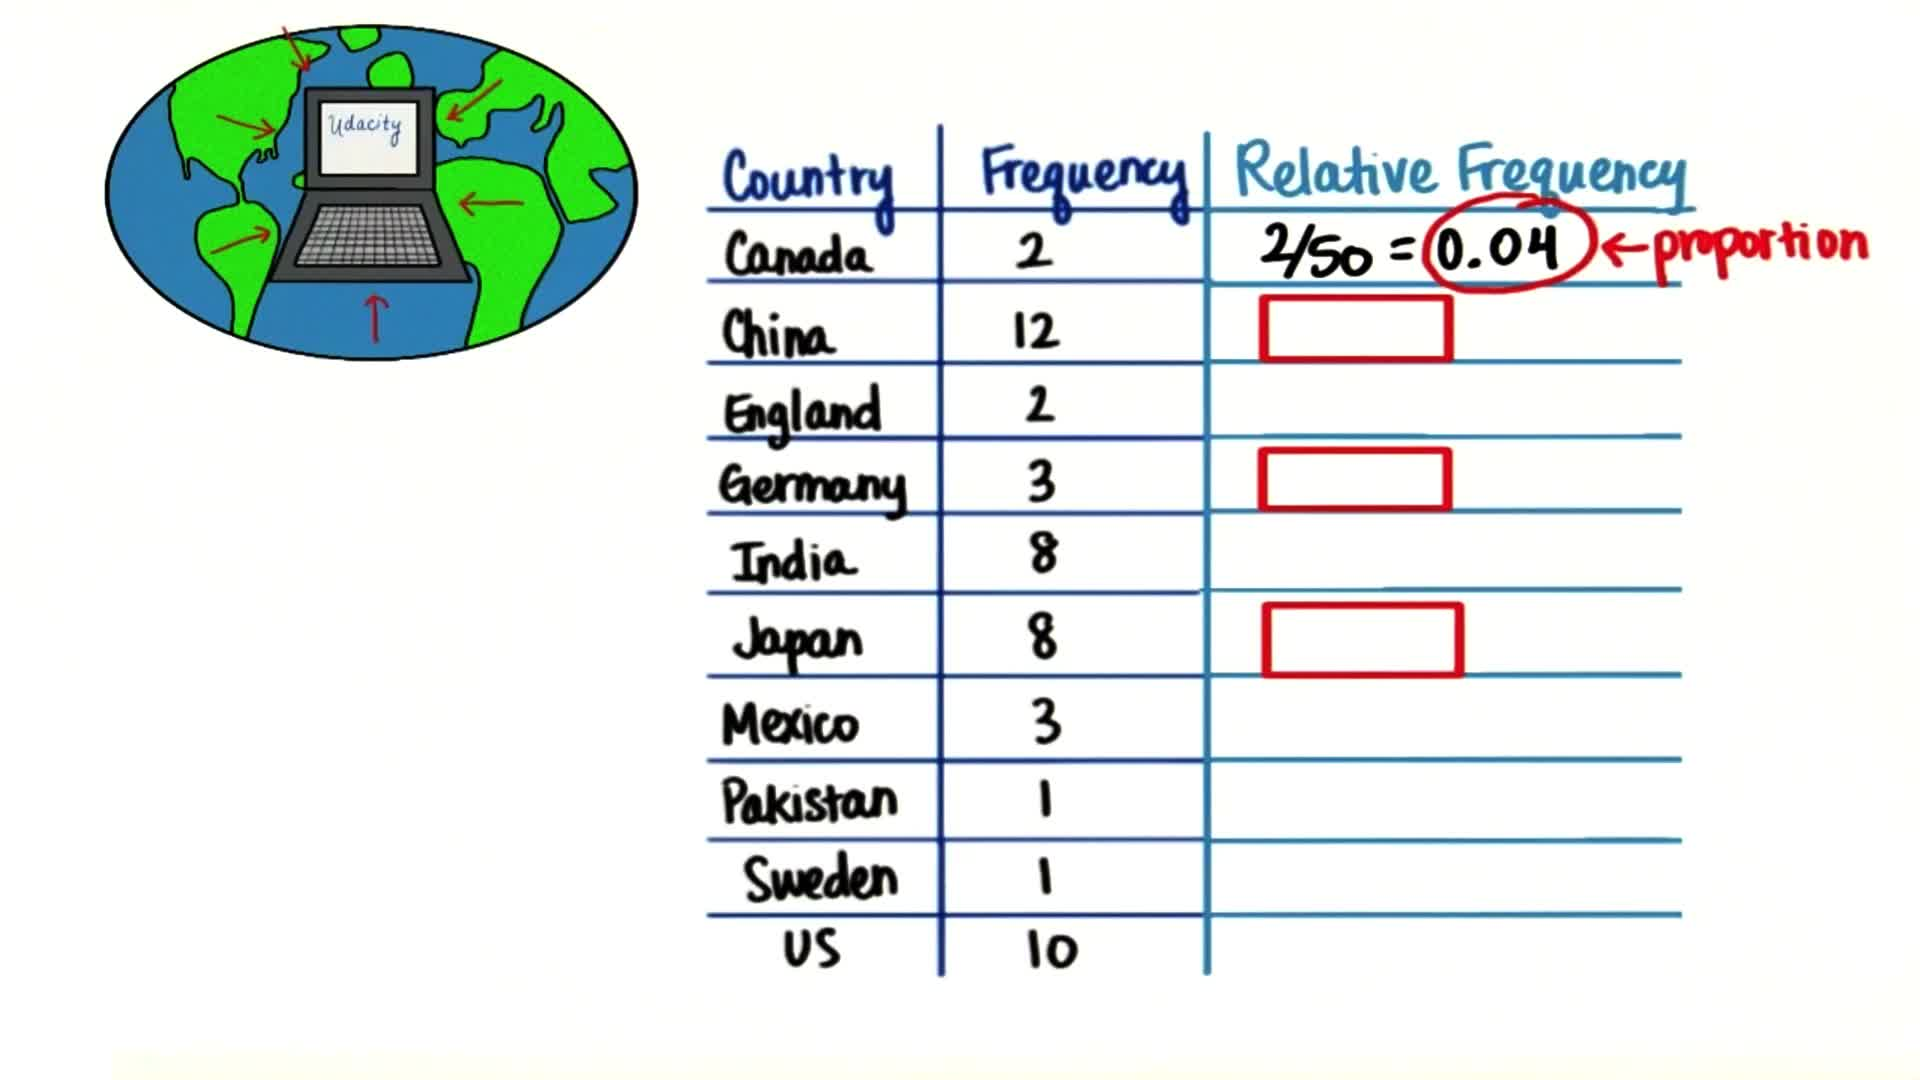 Udacity
Country Frequency Relative Frequency
Canada 2 2/50 = 0.04 ← proportion
China 12
England 2
Germany 3
India 8
Japan 8
Mexico 3
Pakistan 1
Sweden 1
US 10